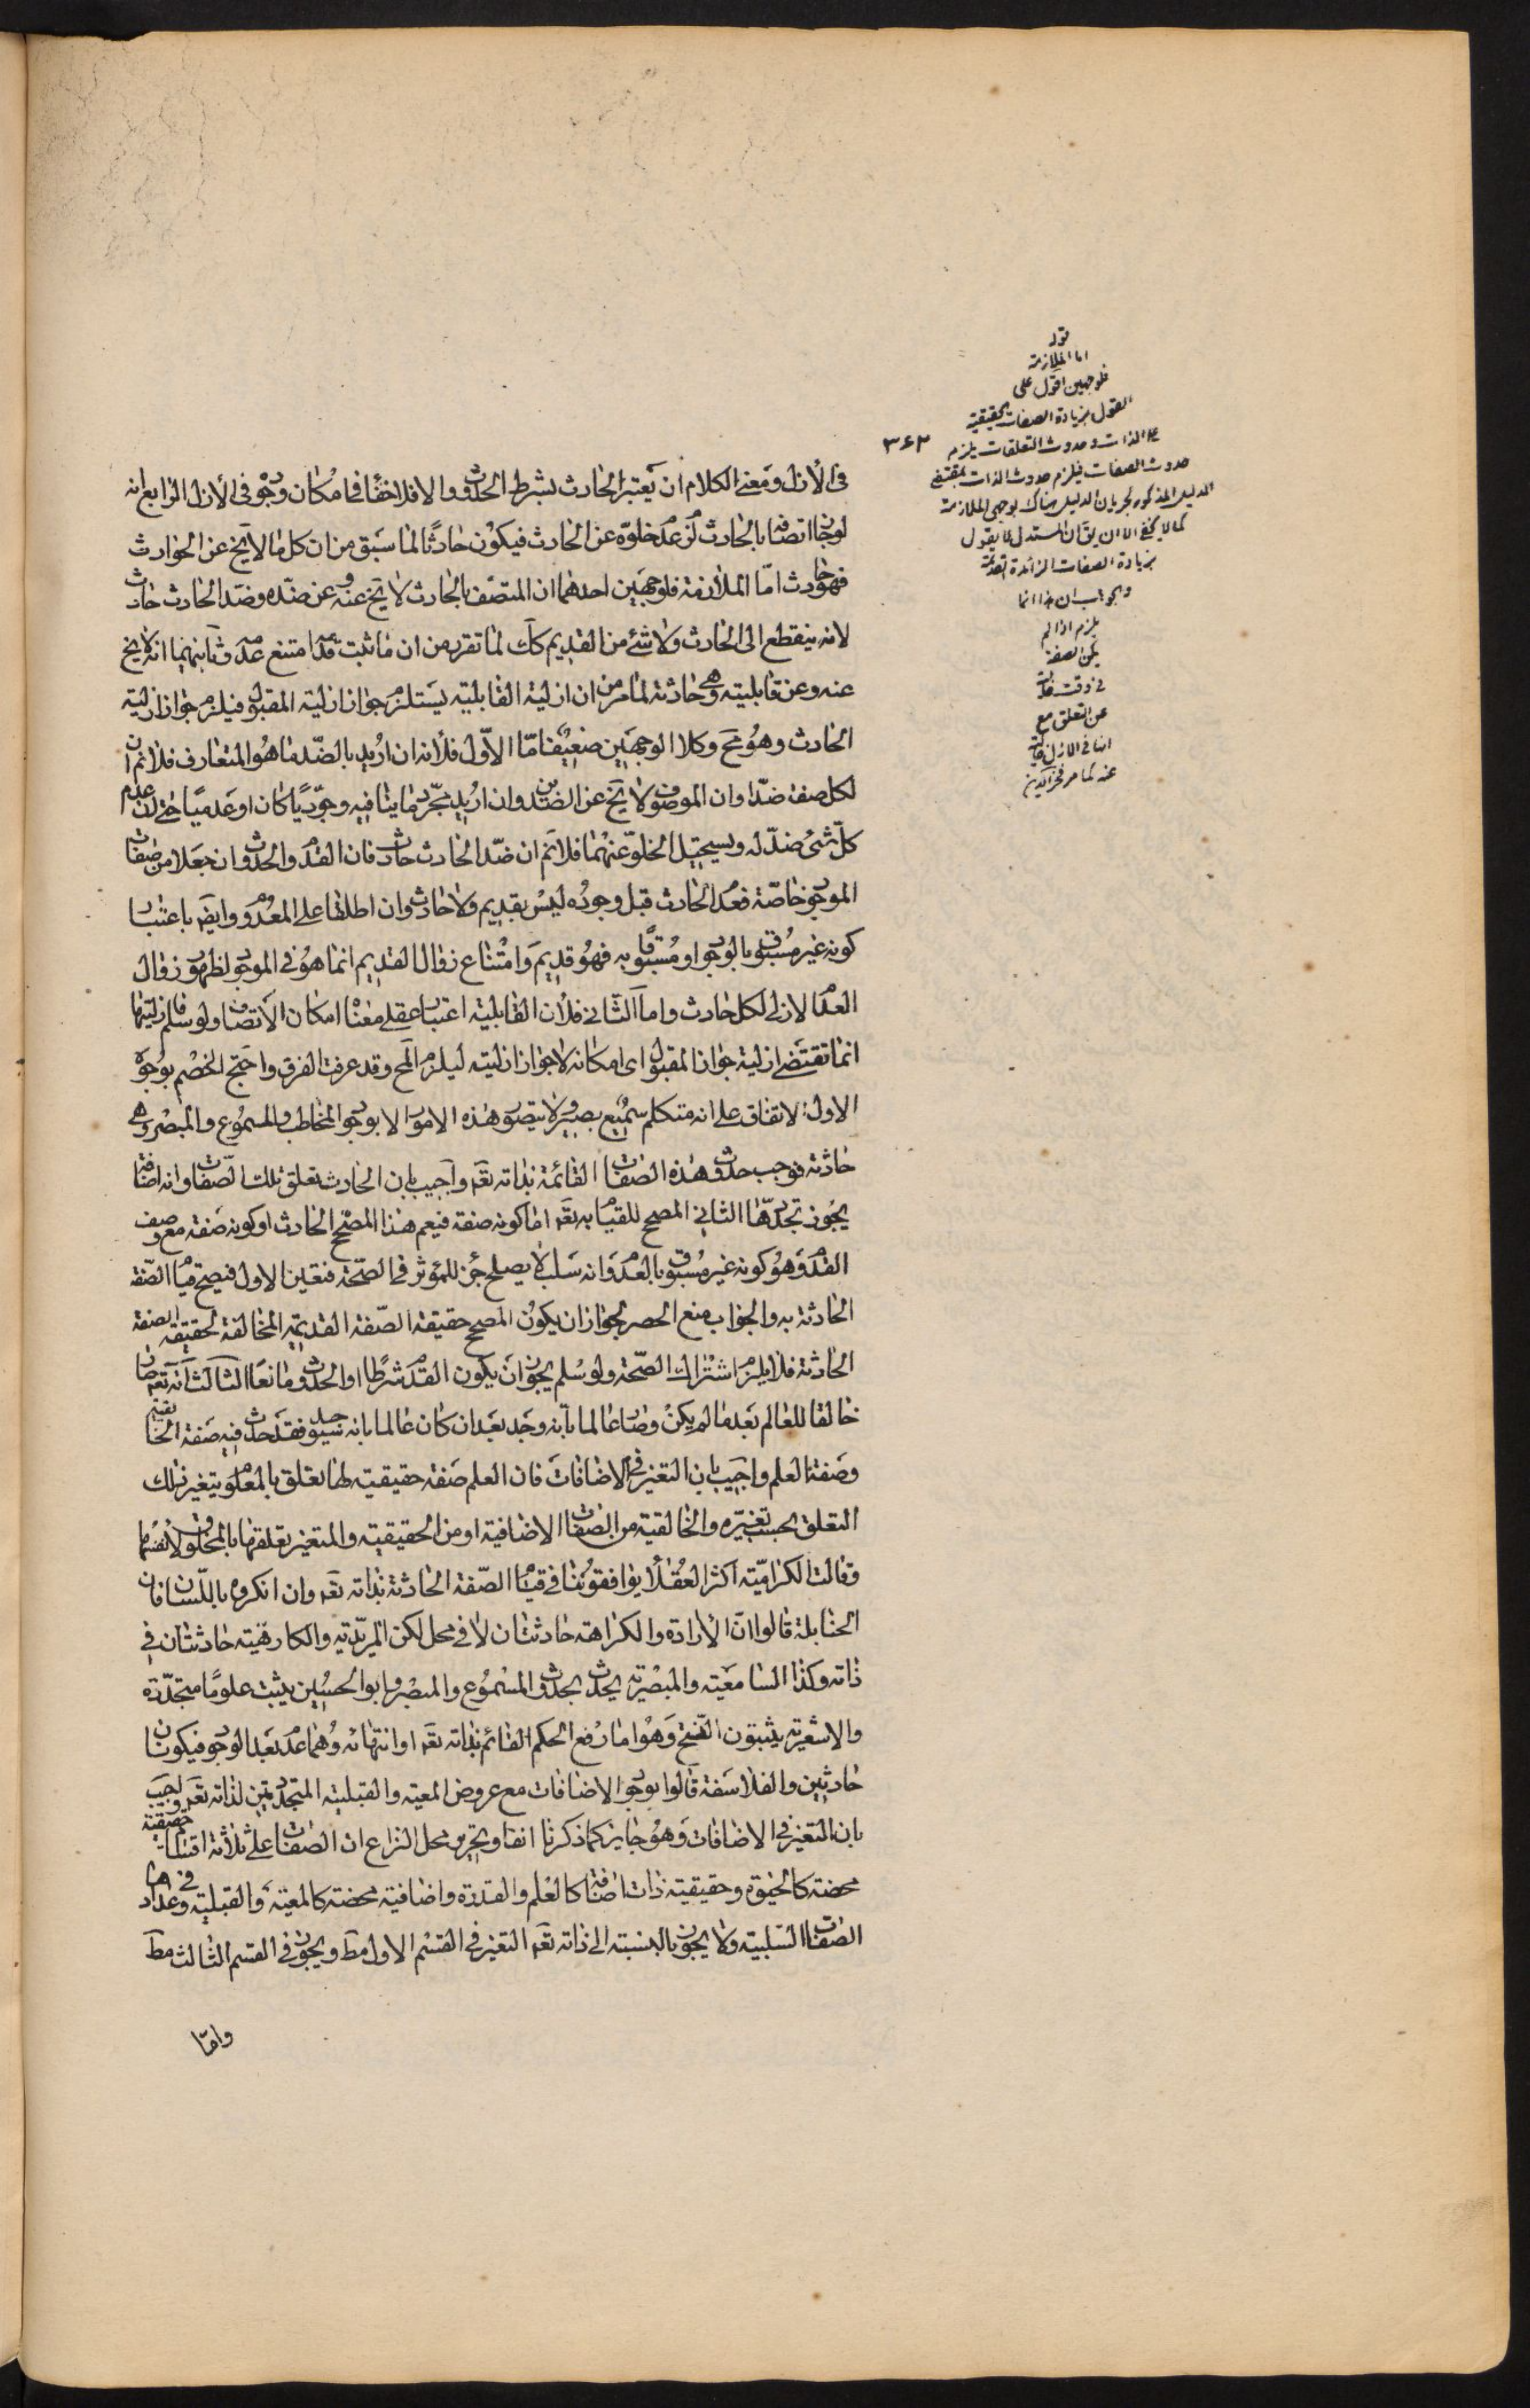 قوله
اما الملازمة
فلوجهين اقول على
القول بزيادة الصفات الحقيقية
على الذات وحدوث التعلقات يلزم
حدوث الصفات فيلزم حدوث الذات بمقتضى
الدليل المذكور لجريان الدليل هناك بوجهى الملازمة
كما لا يخفى الا ان يق ان المستدل لا يقول
بزيادة الصفات الزائدة القديمة
والجواب ان هذا انما
يلزم اذا لم
يكن الصفة
فى وقت
عن التعلق مع
انها فى الازل
عنه كما مر
٣٤٣
فى الأزل ومعنى الكلام ان يعتبر الحادث بشرط الحدوث والا فلا خفأ فى امكان وجوده فى الأزل الرابع انه
لو جاز اتصافه بالحادث لزم عدم خلوّه عن الحادث فيكون حادثًا لما سبق من ان كل ما لا يخ عن الحوادث
فهو حادث امّا الملازمة فلوجهين احدهما ان المتصف بالحادث لا يخ عنه وعن ضدّه وضد الحادث حادث
لانه ينقطع الى الحادث ولا شئ من القديم كك لما تقرر من ان ما ثبت قدمه امتنع عدمه وثانيهما انه لا يخ
عنه وعن قابليته وهى حادثة لما مر من ان ازلية القابلية يستلزم جواز ازلية المقبول فيلزم جواز ازلية
الحادث وهو مح وكلا الوجهين ضعيف امّا الاوّل فلأنه ان اريد بالضد ما هو المتعارف فلا نم ان
لكل صفة ضدّا وان الموصوف لا يخ عن الضدين وان اريد مجرّد ما ينافيه وجوديًا كان او عدميًا حتى ان عدم
كلّ شئ ضدّ له ويستحيل الخلوّ عنهما فلا نم ان ضدّ الحادث حادث فان القدم والحدوث ان جعلا من صفات
الموجود خاصّة فعدم الحادث قبل وجوده ليس بقديم ولا حادث وان اطلقا على المعدوم وايضا باعتبار
كونه غير مسبوق بالوجود او مسبوقًا به فهو قديم وامتناع زوال القديم انما هو فى الموجود لظهور زوال
العدم الازلى لكل حادث واما الثانى فلأن القابلية اعتبار عقلى معناه امكان الاتصاف ولو سلم فازليتها
انما تقتضى ازلية جواز المقبول اى امكانه لا جواز ازليته ليلزم المح وقد عرفت الفرق واحتج الخصم بوجوه
الاول الاتفاق على انه متكلم سميع بصير ولا يتصور هذه الامور الا بوجود المخاطب والمسموع والمبصر وهى
حادثة فوجب حدوث هذه الصفات القائمة بذاته تعه واجيب بان الحادث تعلق تلك الصفات وانه اضافة
يجوز تجددها الثانى المصحح للقيام به تعه اما كونه صفة فيعم هذا المصحح الحادث او كونه صفة مع وصف
القدم وهو كونه غير مسبوق بالعدم وانه سلب لا يصلح جزء للمؤثر فى الصحة فتعين الاول فيصح قيام الصفة
الحادثة به والجواب منع الحصر لجواز ان يكون المصحح حقيقة الصفة القديمة المخالفة لحقيقة الصفة
الحادثة فلا يلزم اشتراك الصحة ولو سلم يجوز ان يكون القدم شرطًا او الحدوث مانعًا الثالث انه تعه صار
خالقا للعالم بعد ما لم يكن وصار عالما بأنه وجد بعد ان كان عالما بانه سيوجد فقد حدث فيه صفة الخالقية
وصفة العلم واجيب بان التغير فى الاضافات فان العلم صفة حقيقية لها تعلق بالمعلوم يتغير ذلك
التعلق بحسب تغيّره والخالقية من الصفات الاضافية او من الحقيقية والمتغير تعلقها بالمخلوق لا نفسها
وقالت الكرّاميّة اكثر العقلأ يوافقوننا فى قيام الصفة الحادثة بذاته تعه وان انكروه باللسان فان
الحنابلة قالوا ان الارادة والكراهة حادثتان لا فى محل لكن المريدية والكارهية حادثتان فى
ذاته وكذا السامعية والمبصرية يحدث بحدوث المسموع والمبصر وابو الحسين يثبت علومًا متجدّدة
والاشعرية يثبتون النسخ وهو اما رفع الحكم القائم بذاته تعه او انتهائه وهما عدم بعد الوجود فيكونان
حادثين والفلاسفة قالوا بوجود الاضافات مع عروض المعية والقبلية المتجددتين لذاته تعه واجيب
بان التغير فى الاضافات وهو جايز كما ذكرنا انفا وتحرير محل النزاع ان الصفات على ثلاثة اقسام حقيقية
محضة كالحيوة وحقيقية ذات اضافة كالعلم والقدرة واضافية محضة كالمعية والقبلية وفى عدادها
الصفات السلبية ولا يجوز بالنسبة الى ذاته تعه التغير فى القسم الاول مط ويجوز فى القسم الثالث مط
وامّا